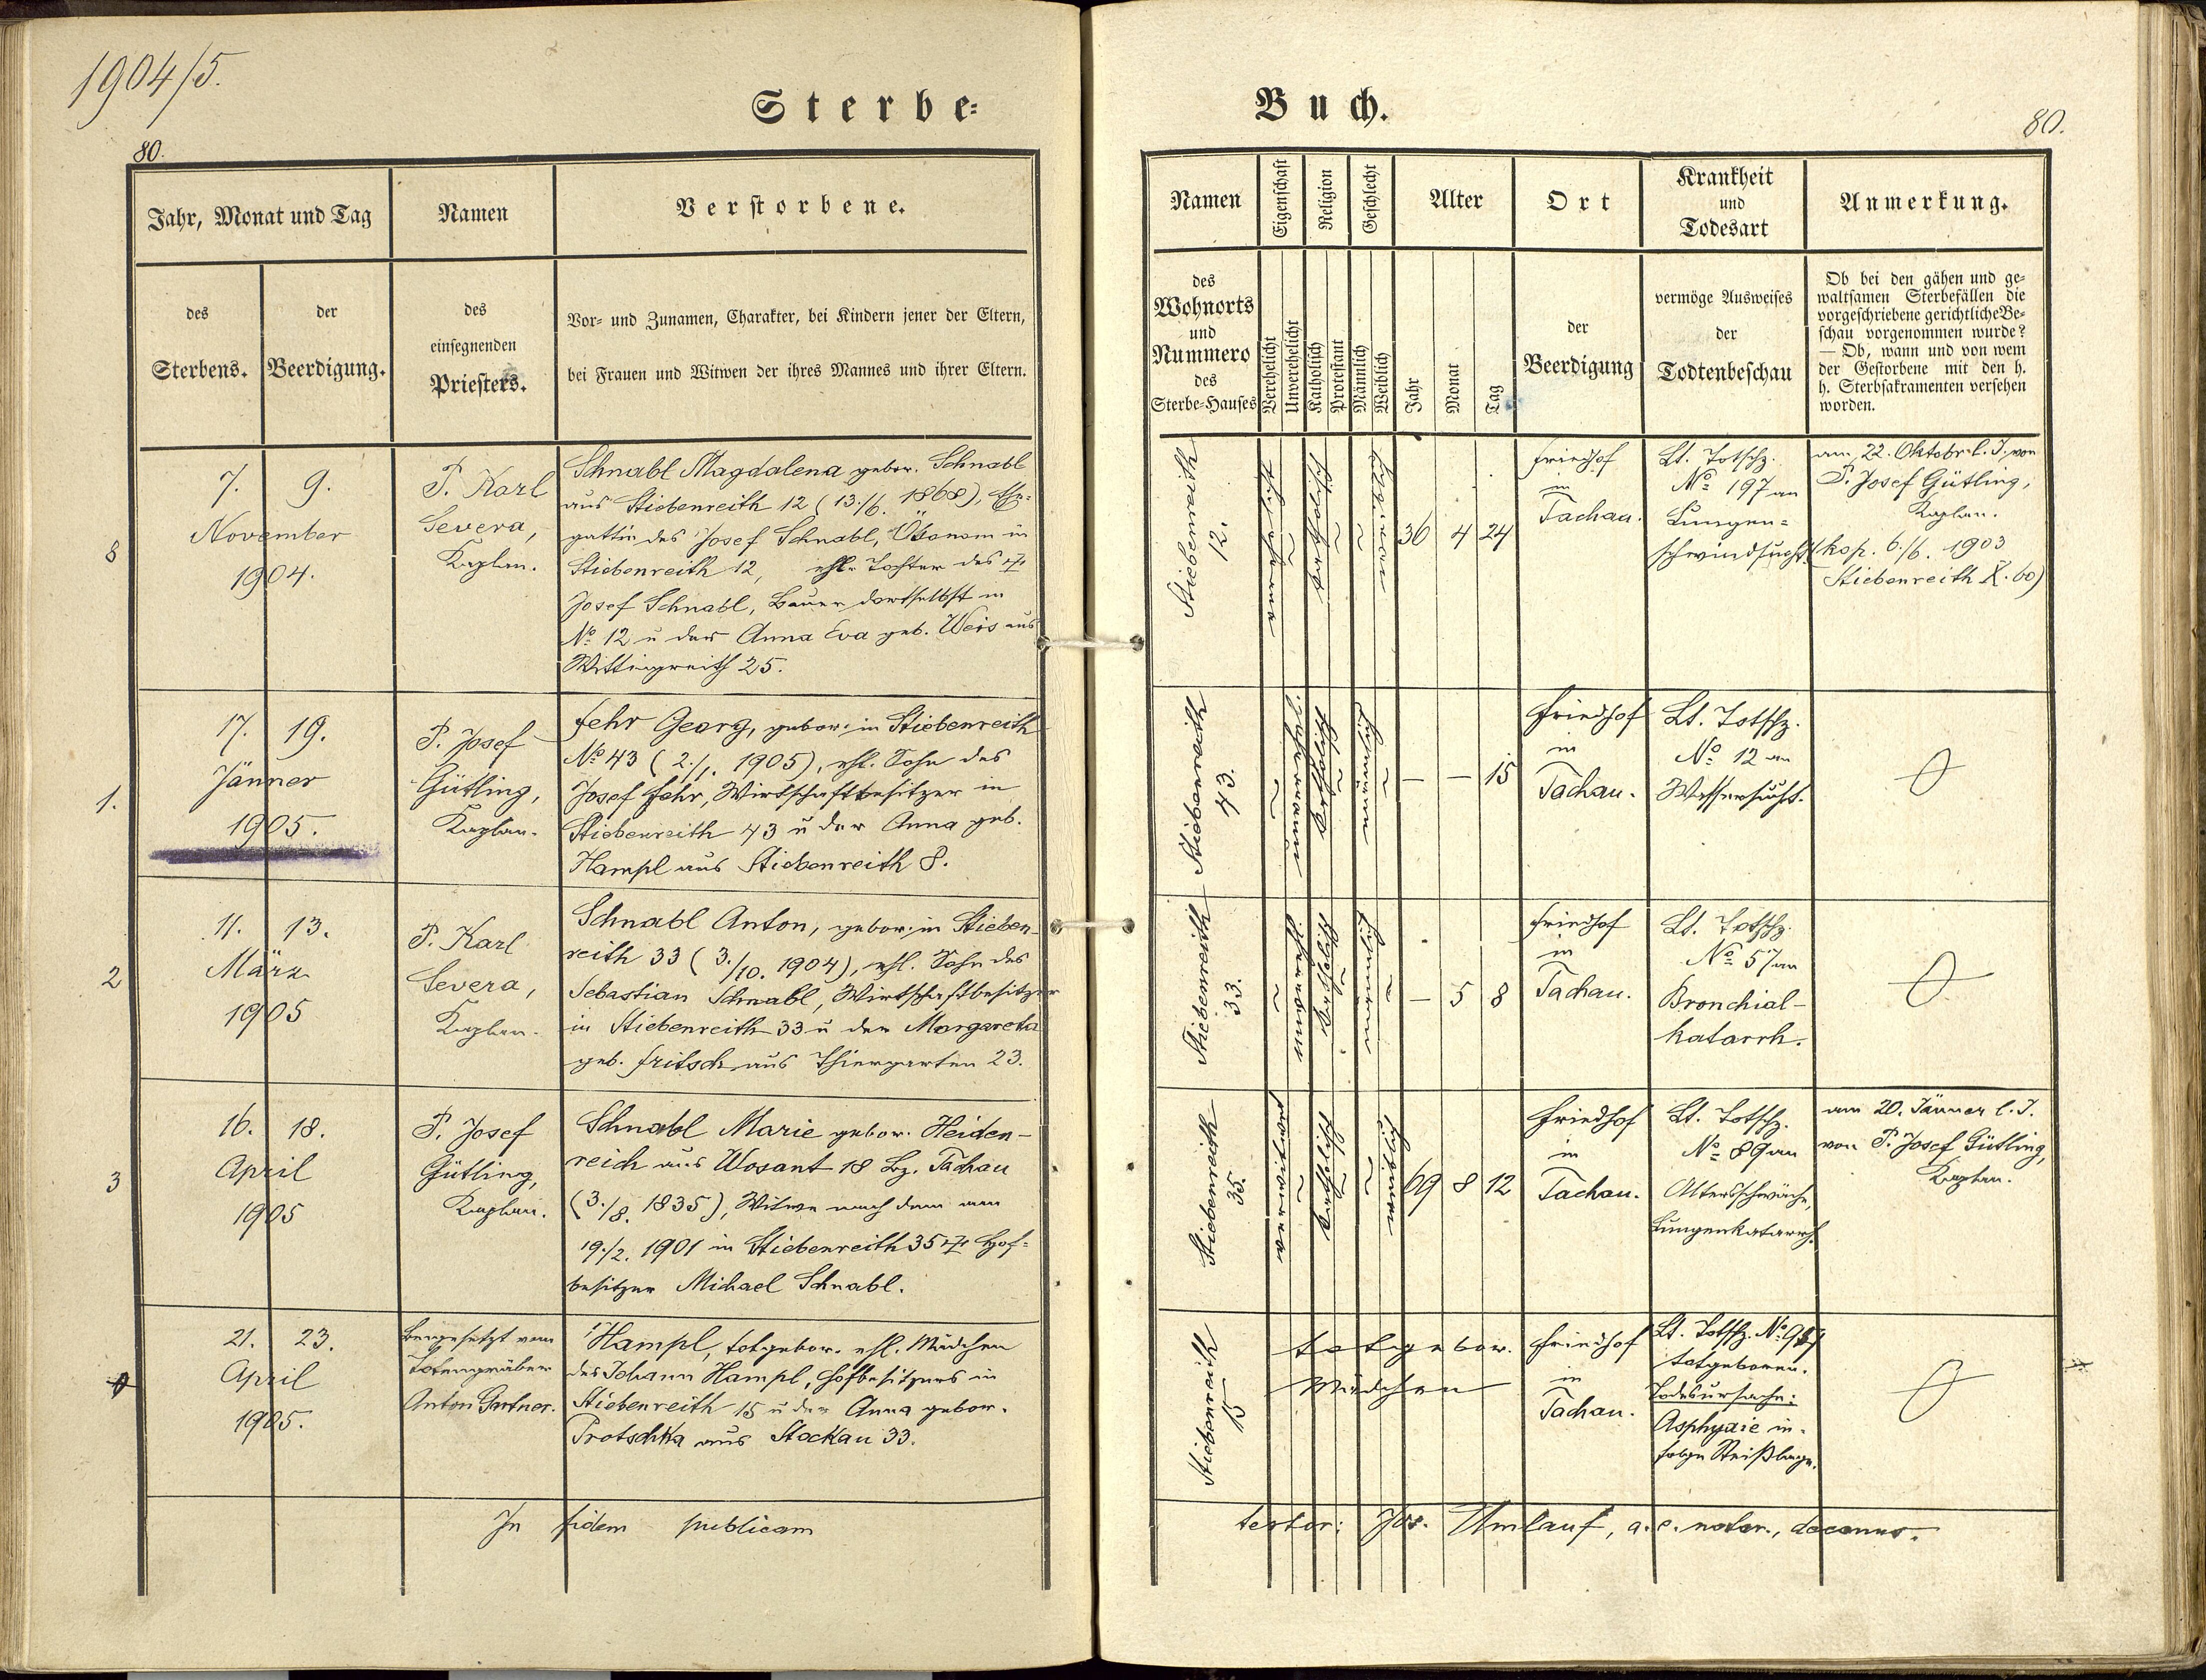 1904/5.
Sterbe-
80.
Jahr, Monat und Tag
Namen
Verstorbene.
des
Sterbens.
der
Beerdigung.
des
einsegnenden
Priesters.
Vor- und Zunamen, Charakter, bei Kindern jener der Eltern,
bei Frauen und Witwen der ihres Mannes und ihrer Eltern.
8
7. 9.
November
1904.
P. Karl
Severa,
Kaplan.
Schnabl Magdalena gebor. Schnabl
aus Stiebenreith 12 (13./6. 1868), Ehe-
gattin des Josef Schnabl, Ökonom in
Stiebenreith 12, ehl. Tochter des †
Josef Schnabl, Bauer dortselbst in
No. 12 u der Anna Eva geb. Weis aus
Wittingreith 25.
1.
17. 19.
Jänner
1905.
P. Josef
Gütling,
Kaplan.
Fehr Georg, gebor. in Stiebenreith
No. 43 (2./1. 1905), ehl. Sohn des
Josef Fehr, Wirtschaftbesitzer in
Stiebenreith 43 u der Anna geb.
Hampl aus Stiebenreith 8.
2
11. 13.
März
1905
P. Karl
Severa,
Kaplan.
Schnabl Anton, gebor. in Stieben-
reith 33 (3./10. 1904), ehl. Sohn des
Sebastian Schnabl, Wirtschaftbesitzer
in Stiebenreith 33 u der Margareta
geb. Fritsch aus Thiergarten 23.
3
16. 18.
April
1905
P. Josef
Gütling,
Kaplan.
Schnabl Marie gebor. Heiden-
reich aus Wosant 18 Bz. Tachau
(3./8. 1835), Witwe nach dem am
19./2. 1901 in Stiebenreith 35 † Hof-
besitzer Michael Schnabl.
21. 23.
April
1905.
Beigesetzt vom
Totengräber
Anton Gntner.
Hampl, totgebor. ehl. Mädchen
des Johann Hampl, Hofbesitzers in
Stiebenreith 15 u der Anna gebor.
Trotschka aus Stockau 33.
In fidem publicam
Buch.
80.
Namen
Eigenschaft
Religion
Geschlecht
Alter
Ort
Krankheit
und
Todesart
Anmerkung.
des
Wohnorts
und
Nummero
des
Sterbe-Hauses
Verehelicht
Unverehelicht
Katholisch
Protestant
Männlich
Weiblich
Jahr
Monat
Tag
der
Beerdigung
vermöge Ausweises
der
Todtenbeschau
Ob bei den gähen und ge-
waltsamen Sterbefällen die
vorgeschriebene gerichtliche Be-
schau vorgenommen wurde?
— Ob, wann und von wem
der Gestorbene mit den h.
h. Sterbsakramenten versehen
worden.
Stiebenreith
12.
katholisch
36 4 24
Friedhof
in
Tachau.
Lt. Totschz.
No. 197 an
Lungen-
schwindsucht.
am 22. Oktobr. l. J. von
P. Josef Gütling,
Kaplan.
(kop. 6./6. 1903
Stiebenreith X. 60)
Stiebenreith
43.
katholisch
— — 15
Friedhof
in
Tachau.
Lt. Totschz.
No. 12 an
Wassersucht.
Stiebenreith
33.
katholisch
— 5 8
Friedhof
in
Tachau.
Lt. Totschz.
No. 57 an
Bronchial-
katarrh.
Stiebenreith
35.
verwitwet
katholisch
69 8 12
Friedhof
in
Tachau.
Lt. Totschz.
No. 89 an
Altersschwäche,
Lungenkatarrh.
am 20. Jänner l. J.
von P. Josef Gütling,
Kaplan.
Stiebenreith
15
totgebor.
Mädchen
Friedhof
in
Tachau.
Lt. Totschz. No.
totgeboren.
Todesursache:
Asphyxie in-
folge Steißlage.
testor: Jos. Umlauf, a. e. notar., decanus.